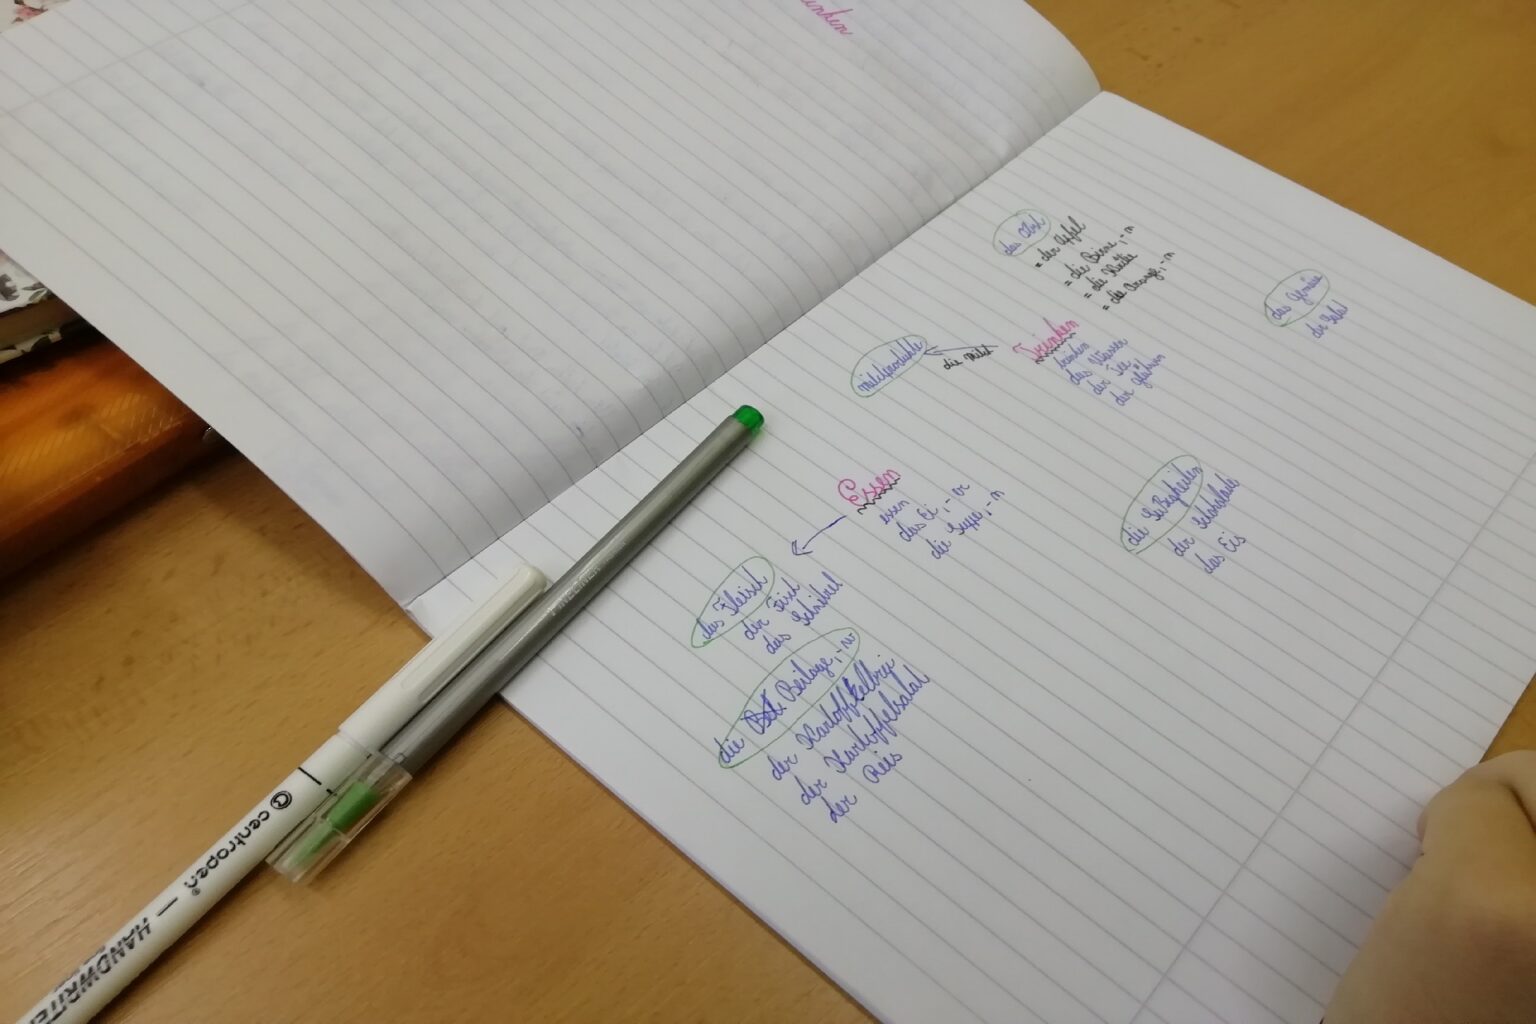 das Obst
= der Apfel
= die Birne, -n
= die Kirsche
= die Orange, -n
das Gemüse
der Salat
Milchprodukte
die Milch
Trinken
trinken
das Wasser
der Tee
Essen
essen
das Ei, -er
die Suppe, -n
die Süßigkeiten
der Schokolade
das Eis
das Fleisch
der Fisch
das Schnitzel
die Beilage, -n
der Kartoffelbrei
der Kartoffelsalat
der Reis
centropen
HANDWRITER